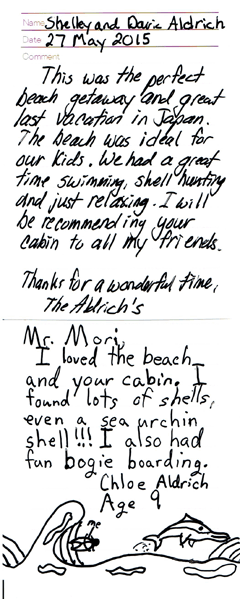 Name Shelley and Davie Aldrich
Date 27 May 2015
Comment
This was the perfect
beach getaway and great
last vacation in Japan.
The beach was ideal for
our kids. We had a great
time swimming, shell hunting
and just relaxing. I will
be recommending your
cabin to all my friends.
Thanks for a wonderful time,
The Aldrich's
Mr. Mori,
I loved the beach
and your cabin. I
found lots of shells,
even a sea urchin
shell!!! I also had
fun bogie boarding.
Chloe Aldrich
Age 9
me